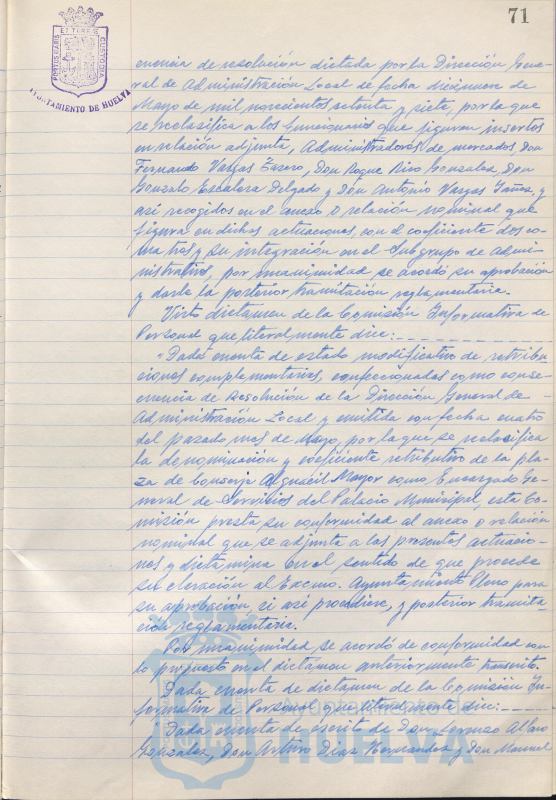 71
PORTUS MARIS ET TERRE CUSTODIA
AYUNTAMIENTO DE HUELVA
cuencia de resolución dictada por la Dirección Gene-
ral de Administración Local de fecha diecinueve de
Mayo de mil novecientos setenta y siete, por la que
se reclasifica a los funcionarios que figuran insertos
en relación adjunta, Administradores de mercados, Don
Fernando Vargas Don Roque Rico Gonzalez, Don
Gonzalo Escalera Delgado y Don Antonio Vargas Yañez, y
así recogidos en el anexo o relación nominal que
figura en dichas actuaciones, con el coeficiente dos co-
ma tres y su integración en el Subgrupo de Admini-
strativos, por unanimidad se acordó su aprobación
y darle la posterior tramitación reglamentaria.
Visto dictamen de la Comisión Informativa de
Personal que literalmente dice:
"Dada cuenta de estado modificativo de retribu
ciones complementarias, confeccionadas como conse-
cuencia de Resolución de la Dirección General de
Administración Local y emitida con fecha cuatro
del pasado mes de Mayo, por la que se reclasifica
la denominación y coeficiente retributivo de la pla-
za de Conserje Alguacil Mayor como Encargado Ge-
neral de Servicios del Palacio Municipal, esta Co-
misión presta su conformidad al anexo o relación
nominal que se adjunta a las presentes actuacio-
nes y dictamina en el sentido de que procede
su elevación al Excmo. Ayuntamiento Pleno para
su aprobación, si así procediere, y posterior tramita-
ción reglamentaria.
Por unanimidad se acordó de conformidad con
lo propuesto en el dictamen anteriormente transcrito.
Dada cuenta de dictamen de la Comisión In-
formativa de Personal que literalmente dice:
"Dada cuenta de escrito de Don Lorenzo Alfaro
Gonzalez, Don Arturo Diaz Hernandez y Don Manuel
HUELVA